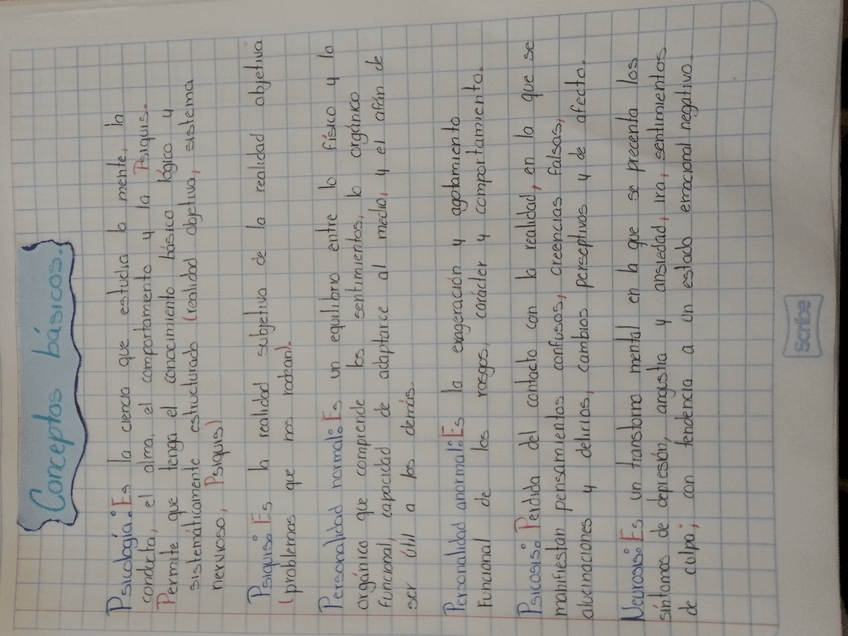 Conceptos básicos.
Psicología: Es la ciencia que estudia la mente, la
conducta, el alma, el comportamiento y la Psiquis.
Permite que tenga el conocimiento básico lógico y
sistemáticamente estructurado (realidad objetiva, sistema
nervioso, Psiquis)
Psiquis: Es la realidad subjetiva de la realidad objetiva
(problemas que nos rodean).
Personalidad normal: Es un equilibrio entre lo físico y lo
orgánico que comprende los sentimientos, lo orgánico
funcional, capacidad de adaptarce al medio, y el afán de
ser útil a los demás.
Personalidad anormal: Es la exageración y agotamiento
funcional de los rasgos, carácter y comportamiento.
Psicosis: Perdida del contacto con la realidad, en la que se
manifiestan pensamientos confusos, creencias falsas,
alucinaciones y delirios, cambios perseptivos y de afecto.
Neurosis: Es un transtorno mental en la que se precenta los
síntomas de depresión, angustia y ansiedad, ira, sentimientos
de culpa; con tendencia a un estado emocional negativo.
Scribe